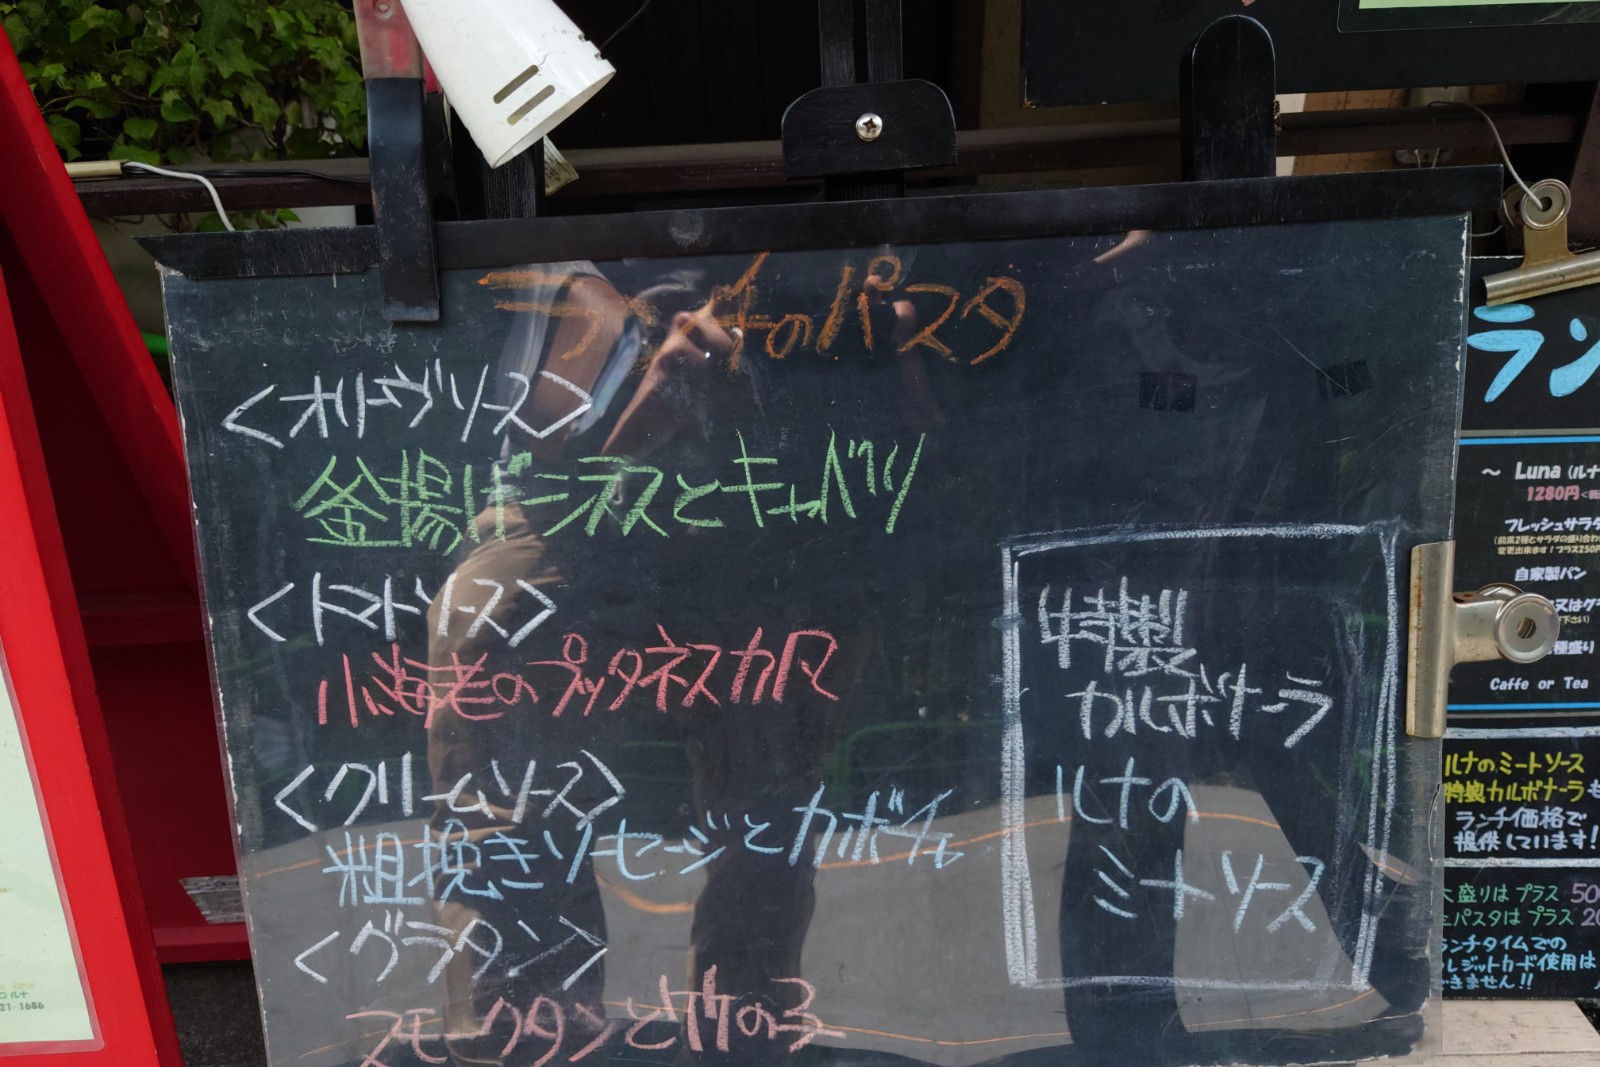 ランチのパスタ
<オリーヴソース>
釜揚げシラスとキャベツ
<トマトソース>
小海老のプッタネスカ風
<クリームソース>
粗挽きソーセージとカボチャ
<グラタン>
スモークタンと竹の子
特製
カルボナーラ
ルナの
ミートソース
ラン
～ Luna (ルナ
1280円
フレッシュサラダ
(前菜2種とサラダの盛り合わ
変更出来ます！プラス250円
自家製パン
又はグ
下さい)
種盛り
Caffe or Tea
ルナのミートソース
特製カルボナーラも
ランチ価格で
提供しています!
盛りは プラス 50
パスタは プラス 20
ランチタイムでの
レジットカード使用は
できません!!
ルナ
21-1686